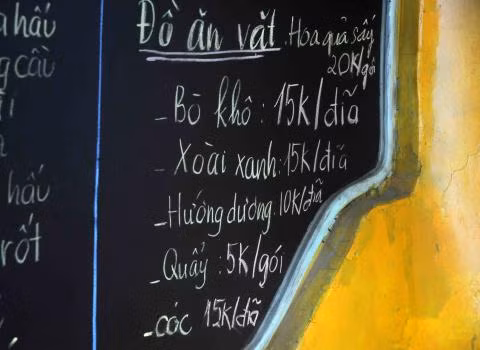 hấu
g cầu
hấu
rốt
Đồ ăn vặt
Hoa quả sấy
20K/gói
- Bò khô : 15K/đĩa
- Xoài xanh: 15K/đĩa
- Hướng dương: 10K/đĩa
- Quẩy : 5K/gói
- cóc 15K/đĩa